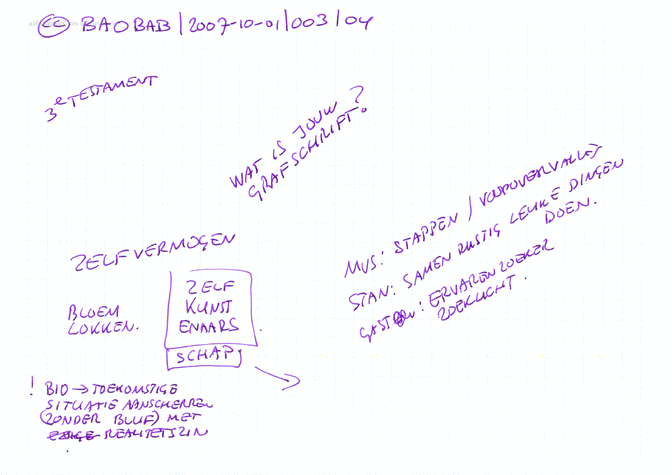 CC BAOBAB | 2007-10-01 | 003 | 04
3e TESTAMENT
WAT IS JOUW
GRAFSCHRIFT?
MUS: STAPPEN /
STAN: SAMEN RUSTIG LEUKE DINGEN
DOEN.
: ERVAREN ZOEKER
ZOEKLICHT.
ZELFVERMOGEN
BLOEM
LOKKEN.
ZELF
KUNST
ENAARS
SCHAP
! BIO → TOEKOMSTIGE
SITUATIE AANSCHERPEN
(ZONDER BLUF) MET
REALITEITSZIN